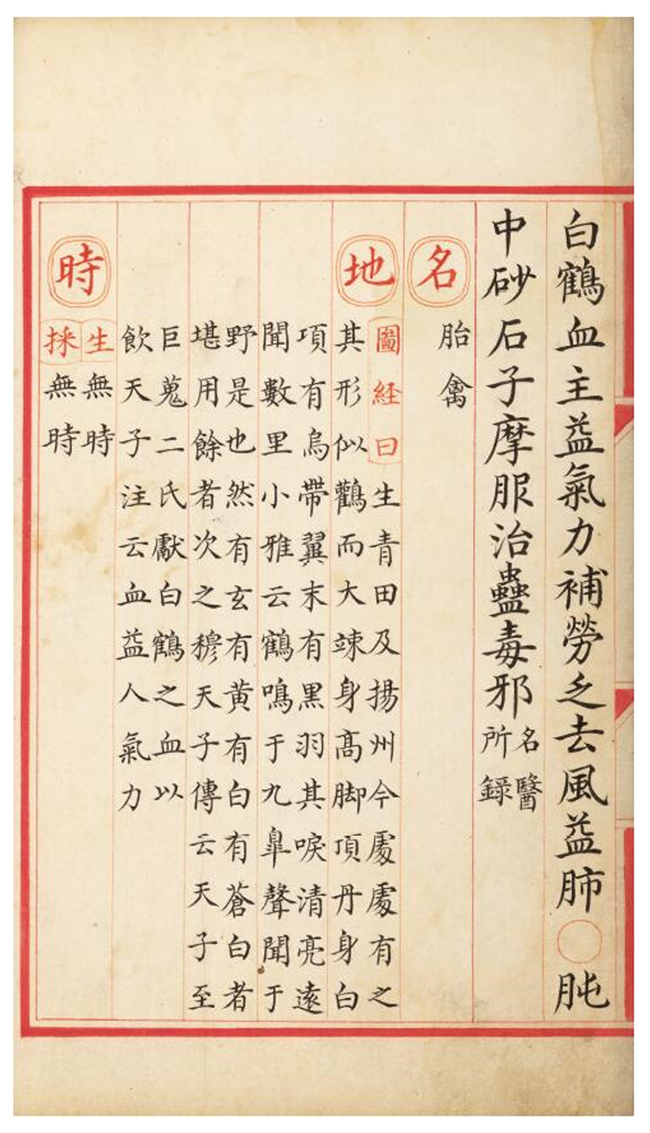 白鶴血主益氣力補勞乏去風益肺○肫
中砂石子摩服治蠱毒邪名醫
所録
名
胎禽
地
圖経曰生青田及揚州今處處有之
其形似鸛而大竦身髙脚項丹身白
項有烏帶翼末有黑羽其唳清亮遠
聞數里小雅云鶴鳴于九臯聲聞于
野是也然有玄有黄有白有蒼白者
堪用餘者次之穆天子傳云天子至
巨蒐二氏獻白鶴之血以
飲天子注云血益人氣力
時
生無時
採無時